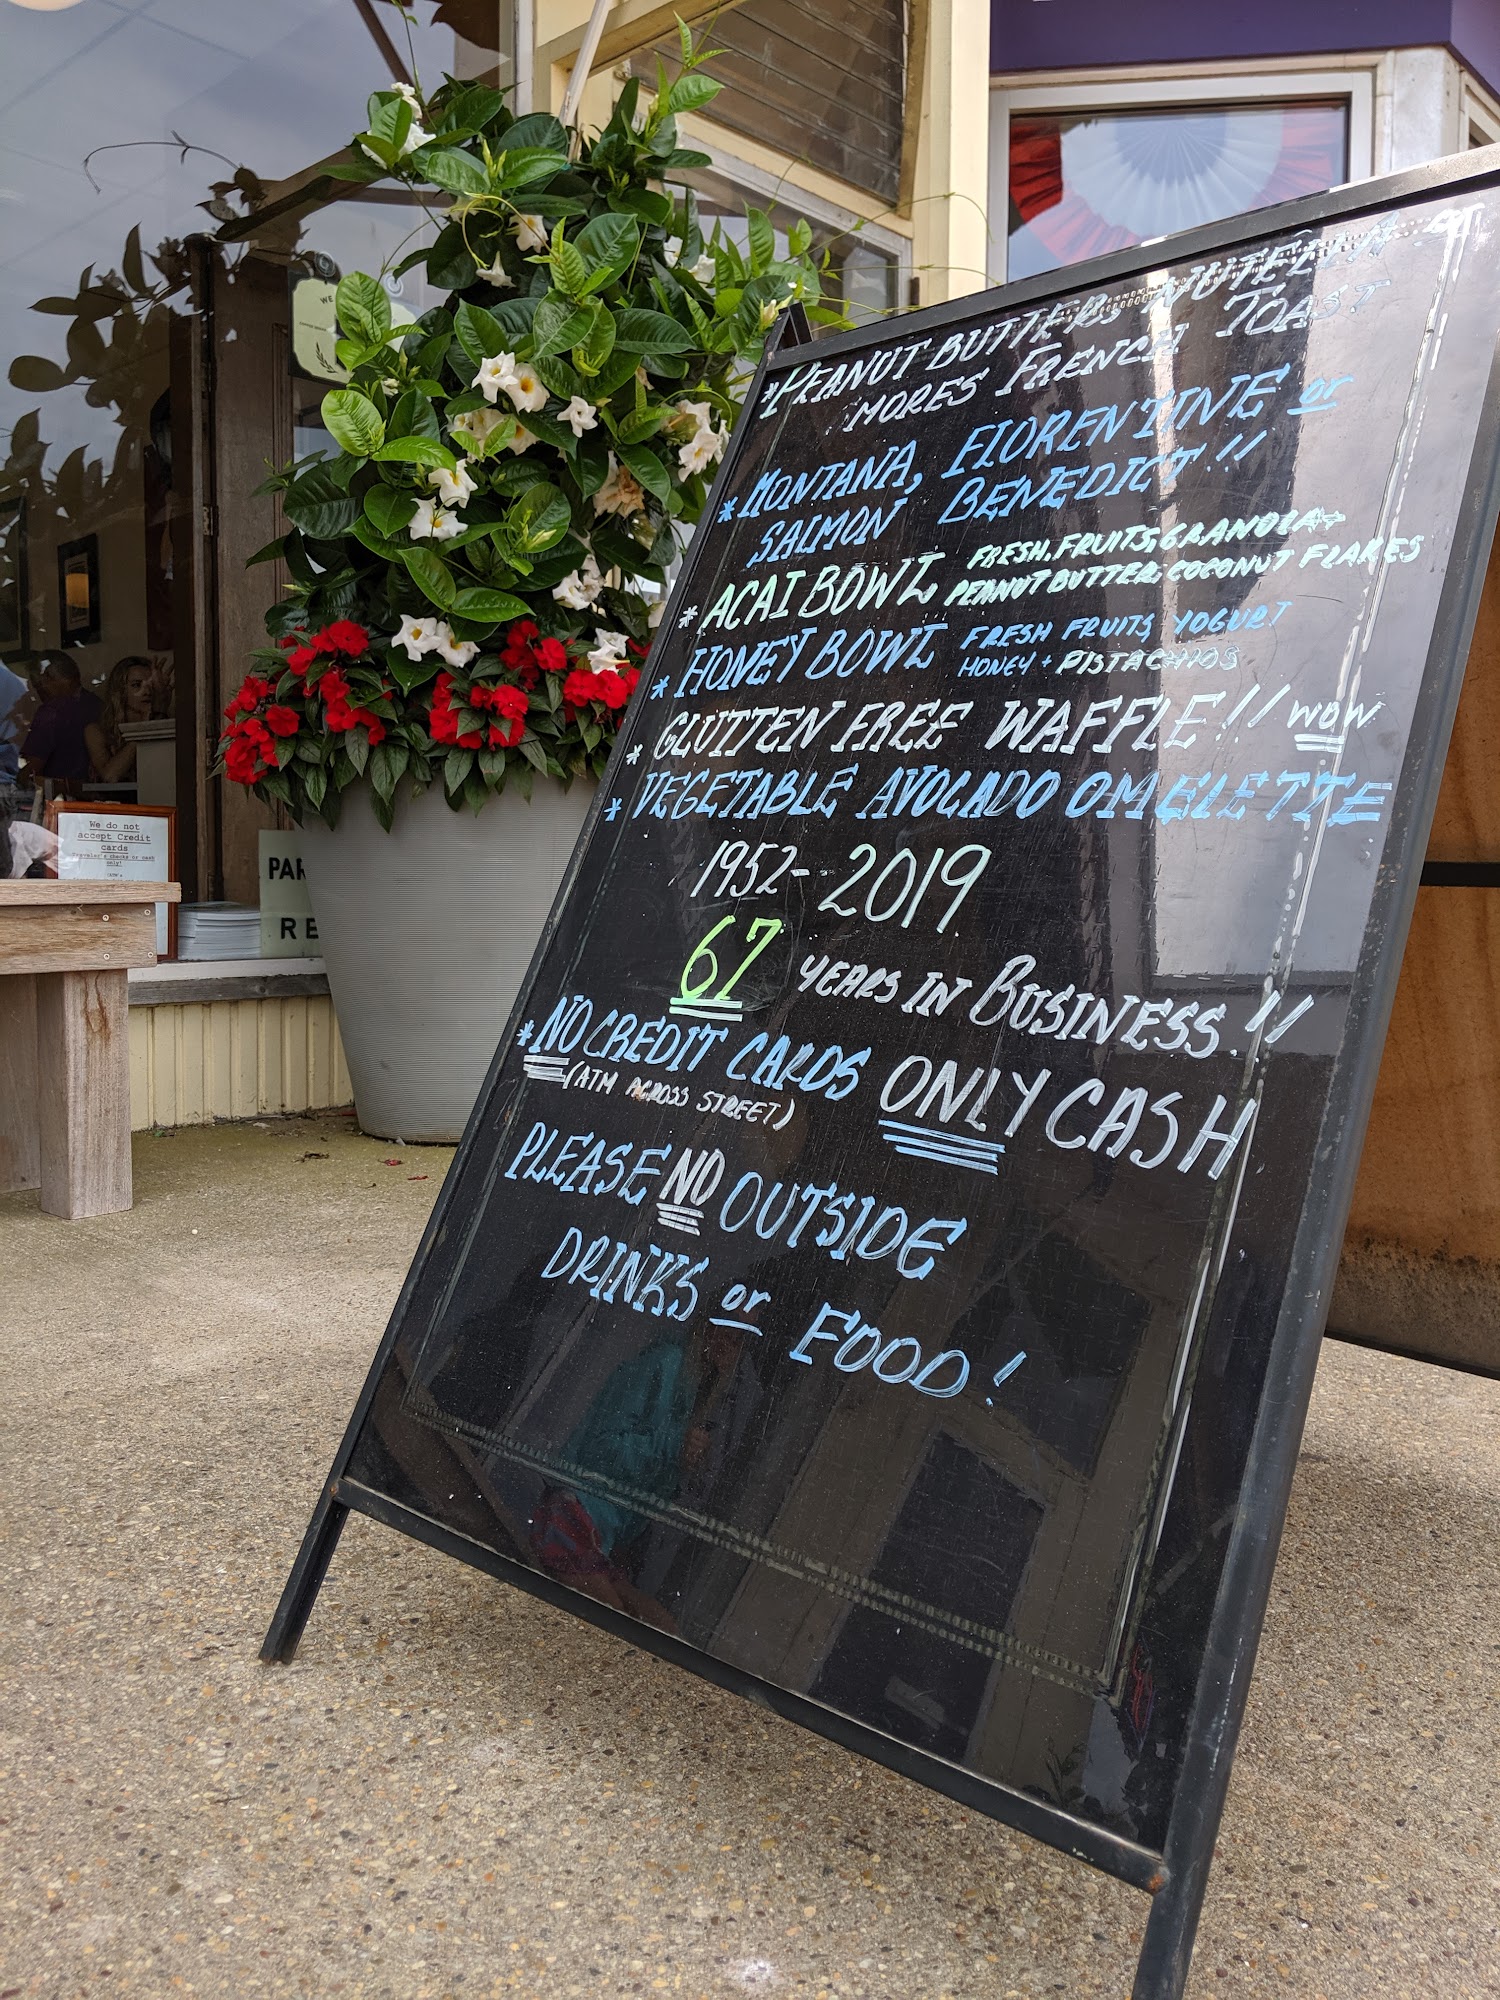 *PEANUT BUTTER, NUTELLA or
MORES FRENCH TOAST
*MONTANA, FLORENTINE or
SALMON BENEDICT!!
*ACAI BOWL FRESH FRUITS, GRANOLA +
PEANUT BUTTER, COCONUT FLAKES
*HONEY BOWL FRESH FRUITS, YOGURT
HONEY + PISTACHIOS
*GLUTTEN FREE WAFFLE!! WOW
*VEGETABLE AVOCADO OMELETTE
1952-2019
67 YEARS IN BUSINESS!!
*NO CREDIT CARDS ONLY CASH
(ATM ACROSS STREET)
PLEASE NO OUTSIDE
DRINKS or FOOD!
We do not
accept Credit
cards
Traveler's checks or cash
only!
PAR
RE
WE